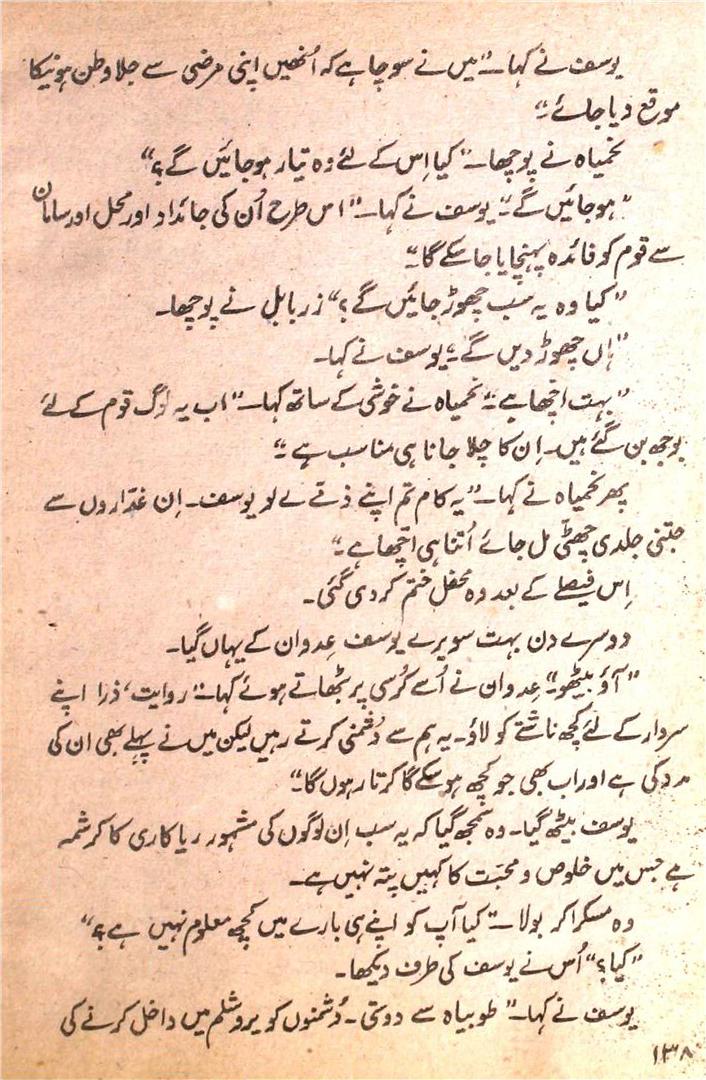 یوسف نے کہا۔ ”میں نے سوچا ہے کہ اُنھیں اپنی مرضی سے جلاوطن ہونیکا
موقع دیا جائے۔“
نحمیاہ نے پوچھا۔ ”کیا اِس کے لئے وہ تیار ہوجائیں گے؟“
”ہوجائیں گے۔“ یوسف نے کہا۔ ”اس طرح اُن کی جائداد اور محل اور سامان
سے قوم کو فائدہ پہنچایا جاسکے گا۔“
”کیا وہ یہ سب چھوڑ جائیں گے؟“ زربابل نے پوچھا۔
”ہاں چھوڑ دیں گے۔“ یوسف نے کہا۔
”بہت اچھا ہے۔“ نحمیاہ نے خوشی کے ساتھ کہا۔ ”اب یہ لوگ قوم کے لئے
بوجھ بن گئے ہیں۔ اِن کا چلا جانا ہی مناسب ہے۔“
پھر نحمیاہ نے کہا۔ ”یہ کام تم اپنے ذمّے لے لو یوسف۔ اِن غدّاروں سے
جتنی جلدی چھٹی مل جائے اُتنا ہی اچھا ہے۔“
اِس فیصلے کے بعد وہ محفل ختم کر دی گئی۔
دوسرے دن بہت سویرے یوسف عِدوان کے یہاں گیا۔
”آؤ بیٹھو۔“ عِدوان نے اُسے کُرسی پر بٹھاتے ہوئے کہا۔ ”روایت، ذرا اپنے
سردار کے لئے کچھ ناشتے کو لاؤ۔ یہ ہم سے دُشمنی کرتے رہیں لیکن میں نے پہلے بھی ان کی
مدد کی ہے اور اب بھی جو کچھ ہو سکے گا کرتا رہوں گا۔“
یوسف بیٹھ گیا۔ وہ سمجھ گیا کہ یہ سب اِن لوگوں کی مشہور ریاکاری کا کرشمہ
ہے جس میں خلوص و محبّت کا کہیں پتہ نہیں ہے۔
وہ مسکرا کر بولا۔ ”کیا آپ کو اپنے ہی بارے میں کچھ معلوم نہیں ہے؟“
”کیا؟“ اُس نے یوسف کی طرف دیکھا۔
یوسف نے کہا۔ ”طوبیاہ سے دوستی۔ دُشمنوں کو یروشلم میں داخل کرنے کی
۱۳۸